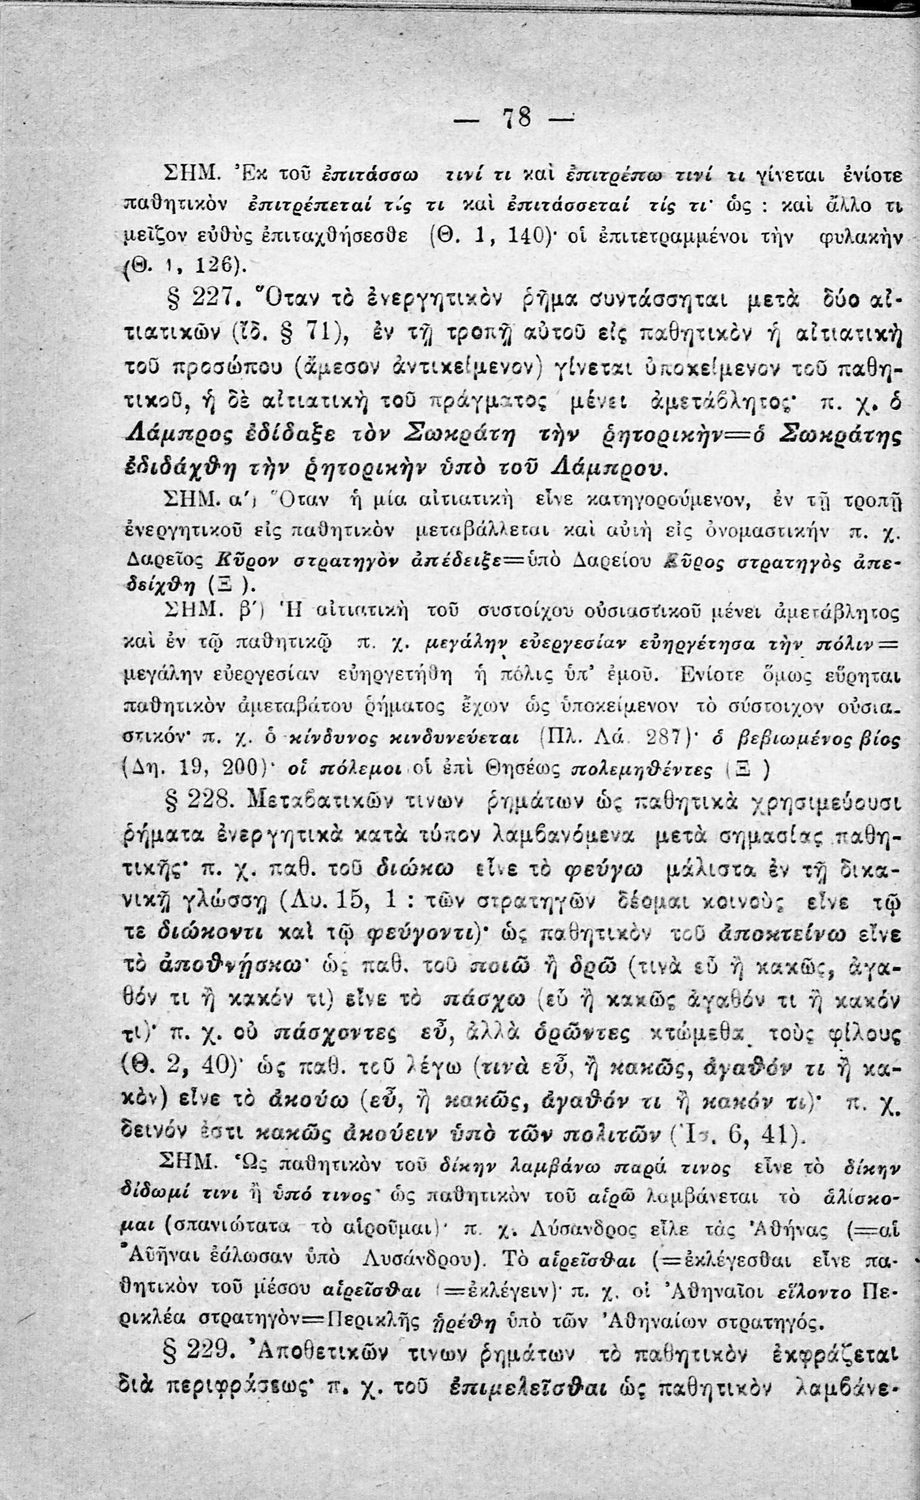 — 78 —
ΣΗΜ. Ἐκ τοῦ ἐπιτάσσω τινί τι καὶ ἐπιτρέπω τινί τι γίνεται ἐνίοτε
παθητικὸν ἐπιτρέπεταί τίς τι καὶ ἐπιτάσσεταί τίς τι· ὡς : καὶ ἄλλο τι
μεῖζον εὐθὺς ἐπιταχθήσεσθε (Θ. 1, 140)· οἱ ἐπιτετραμμένοι τὴν φυλακὴν
(Θ. 1, 126).
§ 227. Ὅταν τὸ ἐνεργητικὸν ῥῆμα συντάσσηται μετὰ δύο αἰ-
τιατικῶν (ἴδ. § 71), ἐν τῇ τροπῇ αὐτοῦ εἰς παθητικὸν ἡ αἰτιατικὴ
τοῦ προσώπου (ἄμεσον ἀντικείμενον) γίνεται ὑποκείμενον τοῦ παθη-
τικοῦ, ἡ δὲ αἰτιατικὴ τοῦ πράγματος μένει ἀμετάβλητος· π. χ. ὁ
Λάμπρος ἐδίδαξε τὸν Σωκράτη τὴν ῥητορικὴν=ὁ Σωκράτης
ἐδιδάχθη τὴν ῥητορικὴν ὑπὸ τοῦ Λάμπρου.
ΣΗΜ. α') Ὅταν ἡ μία αἰτιατικὴ εἶνε κατηγορούμενον, ἐν τῇ τροπῇ
ἐνεργητικοῦ εἰς παθητικὸν μεταβάλλεται καὶ αὐτὴ εἰς ὀνομαστικήν π. χ.
Δαρεῖος Κῦρον στρατηγὸν ἀπέδειξε=ὑπὸ Δαρείου Κῦρος στρατηγὸς ἀπε-
δείχθη (Ξ ).
ΣΗΜ. β') Ἡ αἰτιατικὴ τοῦ συστοίχου οὐσιαστικοῦ μένει ἀμετάβλητος
καὶ ἐν τῷ παθητικῷ π. χ. μεγάλην εὐεργεσίαν εὐηργέτησα τὴν πόλιν=
μεγάλην εὐεργεσίαν εὐηργετήθη ἡ πόλις ὑπ' ἐμοῦ. Ἐνίοτε ὅμως εὕρηται
παθητικὸν ἀμεταβάτου ῥήματος ἔχων ὡς ὑποκείμενον τὸ σύστοιχον οὐσια-
στικόν· π. χ. ὁ κίνδυνος κινδυνεύεται (Πλ. Λά 287)· ὁ βεβιωμένος βίος
(Δη. 19, 200)· οἱ πόλεμοι οἱ ἐπὶ Θησέως πολεμηθέντες (Ξ )
§ 228. Μεταβατικῶν τινων ῥημάτων ὡς παθητικὰ χρησιμεύουσι
ῥήματα ἐνεργητικὰ κατὰ τύπον λαμβανόμενα μετὰ σημασίας παθη-
τικῆς· π. χ. παθ. τοῦ διώκω εἶνε τὸ φεύγω μάλιστα ἐν τῇ δικα-
νικῇ γλώσσῃ (Λυ. 15, 1 : τῶν στρατηγῶν δέομαι κοινοὺς εἶνε τῷ
τε διώκοντι καὶ τῷ φεύγοντι)· ὡς παθητικὸν τοῦ ἀποκτείνω εἶνε
τὸ ἀποθνῄσκω· ὡς παθ. τοῦ ποιῶ ἢ δρῶ (τινὰ εὖ ἢ κακῶς, ἀγα-
θόν τι ἢ κακόν τι) εἶνε τὸ πάσχω (εὖ ἢ κακῶς ἀγαθόν τι ἢ κακόν
τι)· π. χ. οὐ πάσχοντες εὖ, ἀλλὰ δρῶντες κτώμεθα τοὺς φίλους
(Θ. 2, 40)· ὡς παθ. τοῦ λέγω (τινὰ εὖ, ἢ κακῶς, ἀγαθόν τι ἢ κα-
κὸν) εἶνε τὸ ἀκούω (εὖ, ἢ κακῶς, ἀγαθόν τι ἢ κακόν τι)· π. χ.
δεινόν ἐστι κακῶς ἀκούειν ὑπὸ τῶν πολιτῶν (Ἰσ. 6, 41).
ΣΗΜ. Ὡς παθητικὸν τοῦ δίκην λαμβάνω παρά τινος εἶνε τὸ δίκην
δίδωμί τινι ἢ ὑπό τινος· ὡς παθητικὸν τοῦ αἱρῶ λαμβάνεται τὸ ἁλίσκο-
μαι (σπανιώτατα τὸ αἱροῦμαι)· π. χ. Λύσανδρος εἷλε τὰς Ἀθήνας (=αἱ
Ἀθῆναι ἑάλωσαν ὑπὸ Λυσάνδρου). Τὸ αἱρεῖσθαι (=ἐκλέγεσθαι εἶνε πα-
θητικὸν τοῦ μέσου αἱρεῖσθαι (=ἐκλέγειν)· π. χ. οἱ Ἀθηναῖοι εἵλοντο Πε-
ρικλέα στρατηγὸν=Περικλῆς ᾑρέθη ὑπὸ τῶν Ἀθηναίων στρατηγός.
§ 229. Ἀποθετικῶν τινων ῥημάτων τὸ παθητικὸν ἐκφράζεται
διὰ περιφράσεως· π. χ. τοῦ ἐπιμελεῖσθαι ὡς παθητικὸν λαμβάνε-